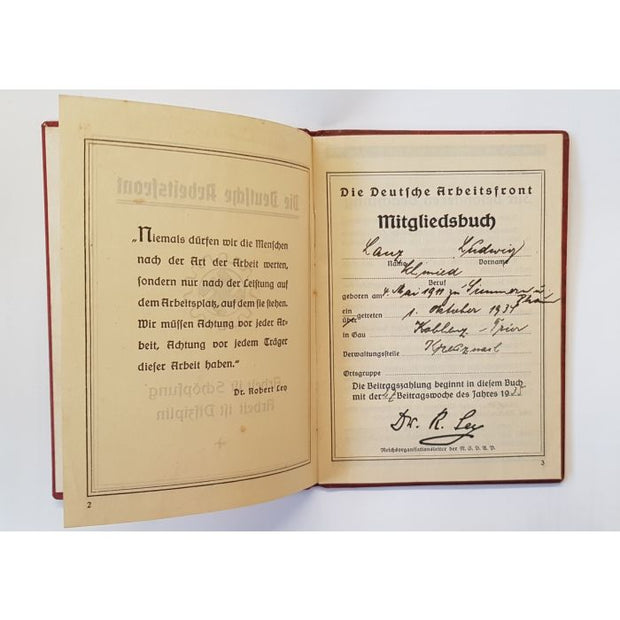 „Niemals dürfen wir die Menschen
nach der Art der Arbeit werten,
sondern nur nach der Leistung auf
dem Arbeitsplatz, auf dem sie stehen.
Wir müssen Achtung vor jeder Ar-
beit, Achtung vor jedem Träger
dieser Arbeit haben.“
Dr. Robert Ley
2
Die Deutsche Arbeitsfront
Mitgliedsbuch
Lanz Ludwig
Name Vorname
Schmied
Beruf
geboren am 4. Mai 1911 zu Simmern u/
ein getreten 1. Oktober 1934
über
in Gau Koblenz-Trier
Verwaltungsstelle Kreuznach
Ortsgruppe
Die Beitragszahlung beginnt in diesem Buch
mit der Beitragswoche des Jahres 1935
Dr. R. Ley
Reichsorganisationsleiter der N.S.D.A.P.
3
Die Deutsche Arbeitsfront
Arbeit ist Schöpfung
Arbeit ist Disziplin